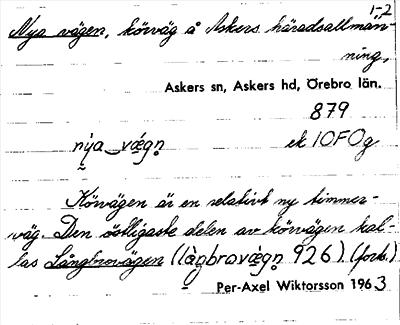 1-2
Nya vägen, körväg å Askers häradsallmän-
ning,
Askers sn, Askers hd, Örebro län.
879
nya vǽgn̥ ek 10F0g
Körvägen är en relativt ny timmer-
väg. Den östligaste delen av körvägen kal-
las Långbrovägen (làŋbrovǽgn̥ 926) (forts.)
Per-Axel Wiktorsson 1963